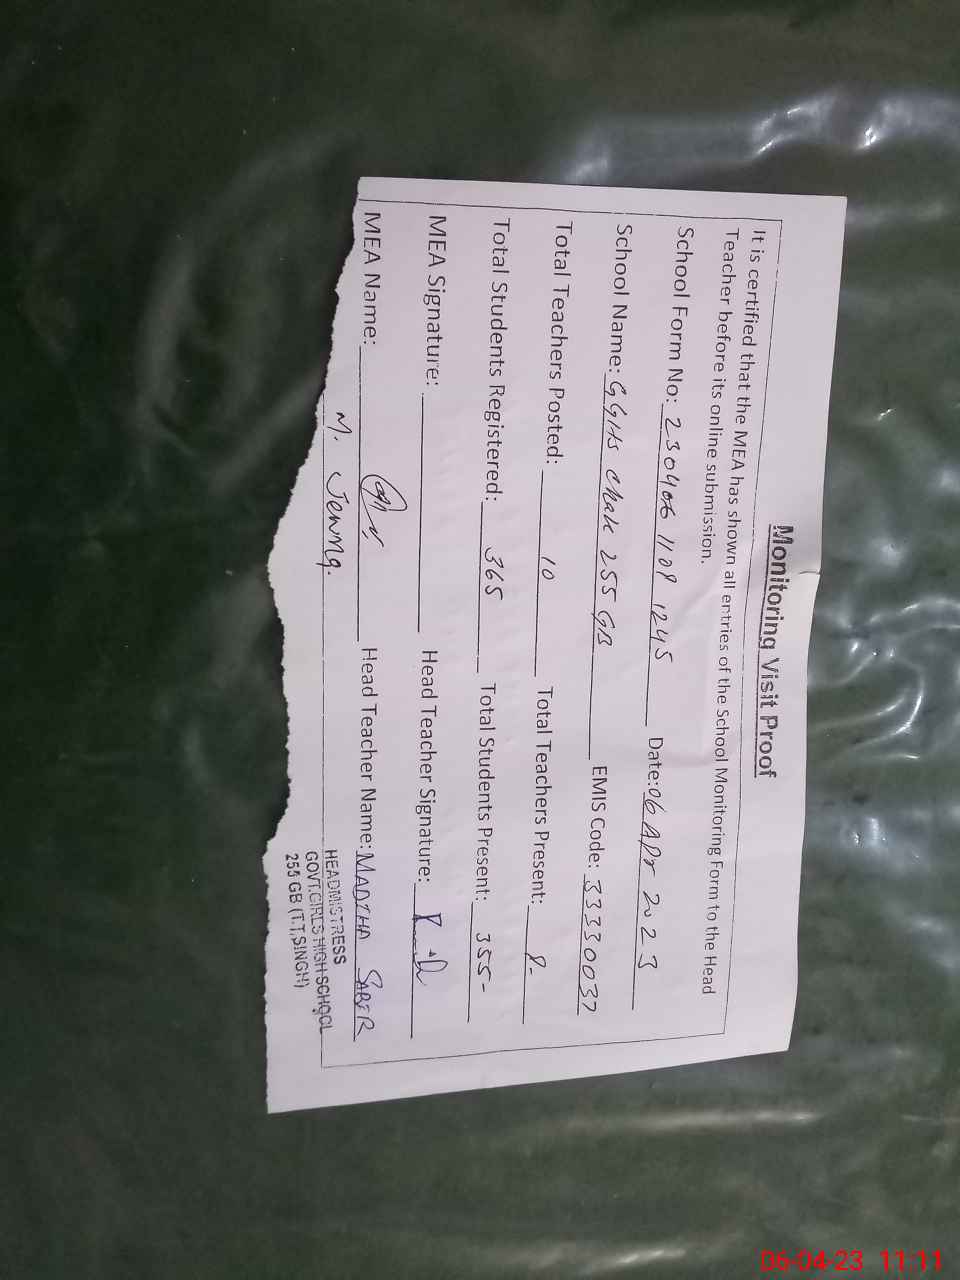 Monitoring Visit Proof
It is certified that the MEA has shown all entries of the School Monitoring Form to the Head
Teacher before its online submission.
School Form No: 230406 1109 1245 Date: 06 Apr 2023
School Name: GGHS Chak 255 GB EMIS Code: 33330037
Total Teachers Posted: 10 Total Teachers Present: 8-
Total Students Registered: 365 Total Students Present: 355-
MEA Signature: Head Teacher Signature:
MEA Name: M. Head Teacher Name: MADIHA SABER
HEADMISTRESS
GOVT.GIRLS HIGH SCHOOL
255 GB (T.T.SINGH)
06-04-23 11:11